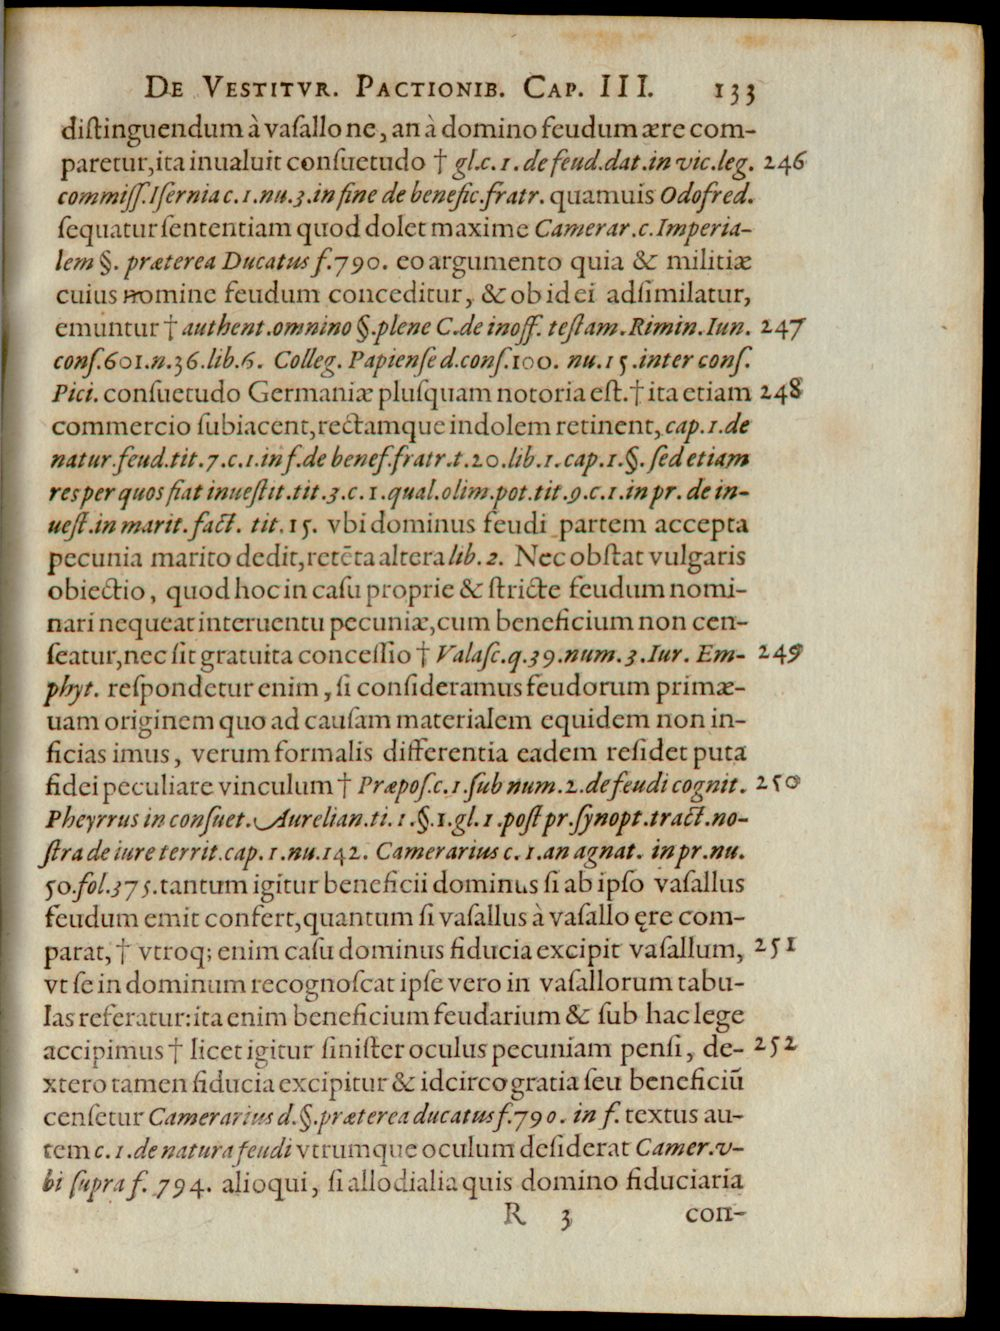 DE VESTITVR. PACTIONIB. CAP. III. 133
diſtinguendum à vaſallo ne, an à domino feudum ære com-
paretur, ita inualuit conſuetudo † gl. c. 1. de feud. dat. in vic. leg. 246
commiſſ. Iſernia c. 1. nu. 3. in fine de benefic. fratr. quamuis Odofred.
ſequatur ſententiam quod dolet maxime Camerar. c. Imperia-
lem §. præterea Ducatus f. 790. eo argumento quia & militiæ
cuius nomine feudum conceditur, & ob id ei adſimilatur,
emuntur † authent. omnino §. plene C. de inoff. teſtam. Rimin. Iun. 247
conſ. 601. n. 36. lib. 6. Colleg. Papienſe d. conſ. 100. nu. 15. inter conſ.
Pici. conſuetudo Germaniæ pluſquam notoria eſt. † ita etiam 248
commercio ſubiacent, rectamque indolem retinent, cap. 1. de
natur. feud. tit. 7. c. 1. in f. de benef. fratr. t. 20. lib. 1. cap. 1. §. ſed etiam
res per quos fiat inueſtit. tit. 3. c. 1. qual. olim. pot. tit. 9. c. 1. in pr. de in-
ueſt. in marit. fact. tit. 15. vbi dominus feudi partem accepta
pecunia marito dedit, retēta altera lib. 2. Nec obſtat vulgaris
obiectio, quod hoc in caſu proprie & ſtricte feudum nomi-
nari nequeat interuentu pecuniæ, cum beneficium non cen-
ſeatur, nec ſit gratuita conceſſio † Valaſc. q. 39. num. 3. Iur. Em- 249
phyt. reſpondetur enim, ſi conſideramus feudorum primæ-
uam originem quo ad cauſam materialem equidem non in-
ficias imus, verum formalis differentia eadem reſidet puta
fidei peculiare vinculum † Præpoſ. c. 1. ſub num. 2. de feudi cognit. 250
Pheyrrus in conſuet. Aurelian. ti. 1. §. 1. gl. 1. poſt pr. ſynopt. tract. no-
ſtra de iure territ. cap. 1. nu. 142. Camerarius c. 1. an agnat. in pr. nu.
50. fol. 375. tantum igitur beneficii dominus ſi ab ipſo vaſallus
feudum emit confert, quantum ſi vaſallus à vaſallo ęre com-
parat, † vtroq; enim caſu dominus fiducia excipit vaſallum, 251
vt ſe in dominum recognoſcat ipſe vero in vaſallorum tabu-
las referatur: ita enim beneficium feudarium & ſub hac lege
accipimus † licet igitur ſiniſter oculus pecuniam penſi, de- 252
xtero tamen fiducia excipitur & idcirco gratia ſeu beneficiū
cenſetur Camerarius d. §. præterea ducatus f. 790. in f. textus au-
tem c. 1. de natura feudi vtrumque oculum deſiderat Camer. v-
bi ſupra f. 794. alioqui, ſi allodialia quis domino fiduciaria
R 3 con-